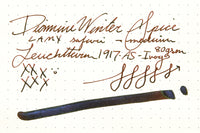 Diamine Winter Spice
LAMY safari - medium
Leuchtturm 1917 - A5 - Ivory 80gram
xxx